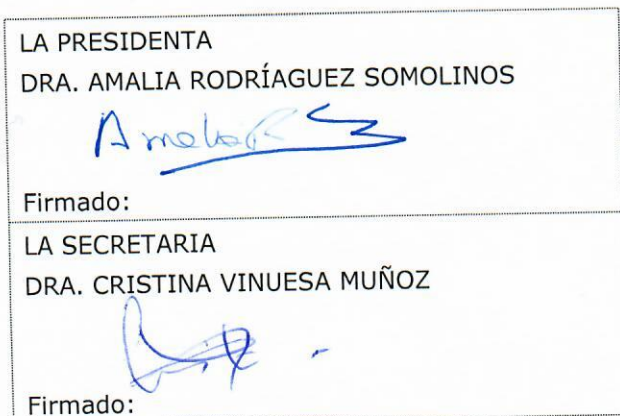 LA PRESIDENTA
DRA. AMALIA RODRÍAGUEZ SOMOLINOS
Firmado:
LA SECRETARIA
DRA. CRISTINA VINUESA MUÑOZ
Firmado: